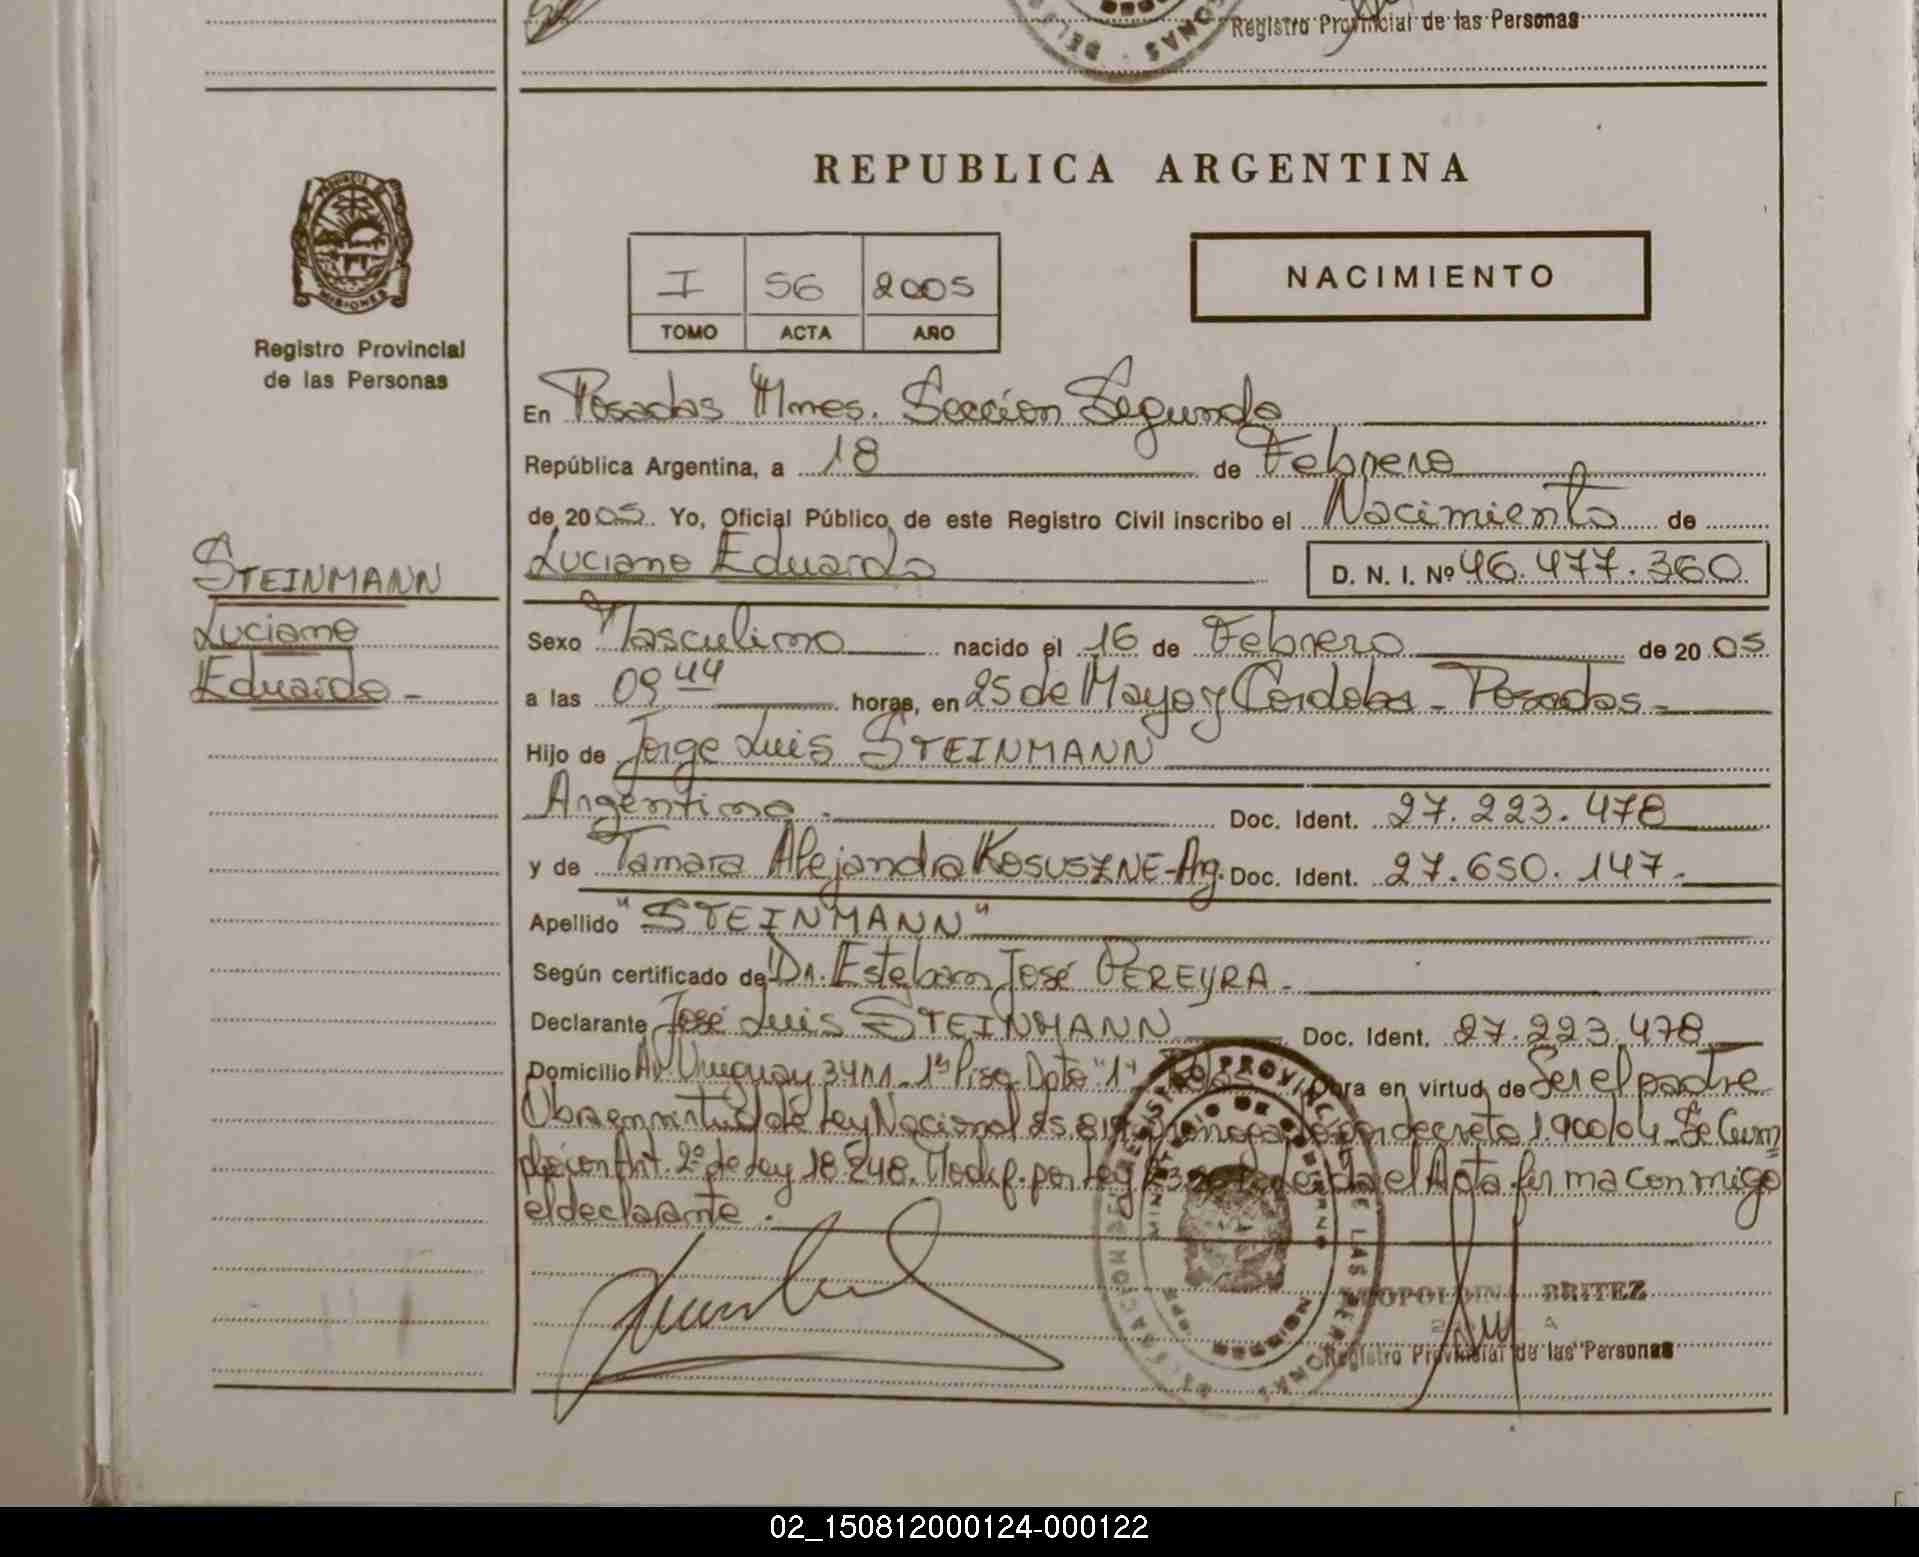 Registro Provincial de las Personas
REPUBLICA ARGENTINA
PROVINCIA DE
MISIONES
Registro Provincial
de las Personas
I 56 2005
TOMO ACTA AÑO
NACIMIENTO
En Posadas Mnes. Sección Segunda
República Argentina, a 18 de Febrero
de 2005. Yo, Oficial Público de este Registro Civil inscribo el Nacimiento de
Luciano Eduardo D. N. I. Nº 46.477.360
STEINMANN
Luciano
Eduardo -
Sexo Masculino nacido el 16 de Febrero de 2005
a las 09 44 horas, en 25 de Mayo y Cordoba - Posadas -
Hijo de Jorge Luis STEINMANN
Argentino - Doc. Ident. 27.223.478
y de Tamara Alejandra KOSUSZNE - Arg. Doc. Ident. 27.650.147 -
Apellido "STEINMANN"
Según certificado de Dr. Esteban José PEREYRA -
Declarante José Luis STEINMANN Doc. Ident. 27.223.478
Domicilio Av Uruguay 3411 - 1er Piso Dpto "1" Obra en virtud de Ser el padre
Obra en virtud de Ley Nacional 25.819 por decreto 1.900/04 - Se Cum
plió con Art. 2º de Ley 18.248. Modif. por Ley el Acta firma conmigo
el declarante.
REGISTRO PROVINCIAL DE LAS PERSONAS
MINISTERIO DE GOBIERNO
BRITEZ
Registro Provincial de las Personas
02_150812000124-000122